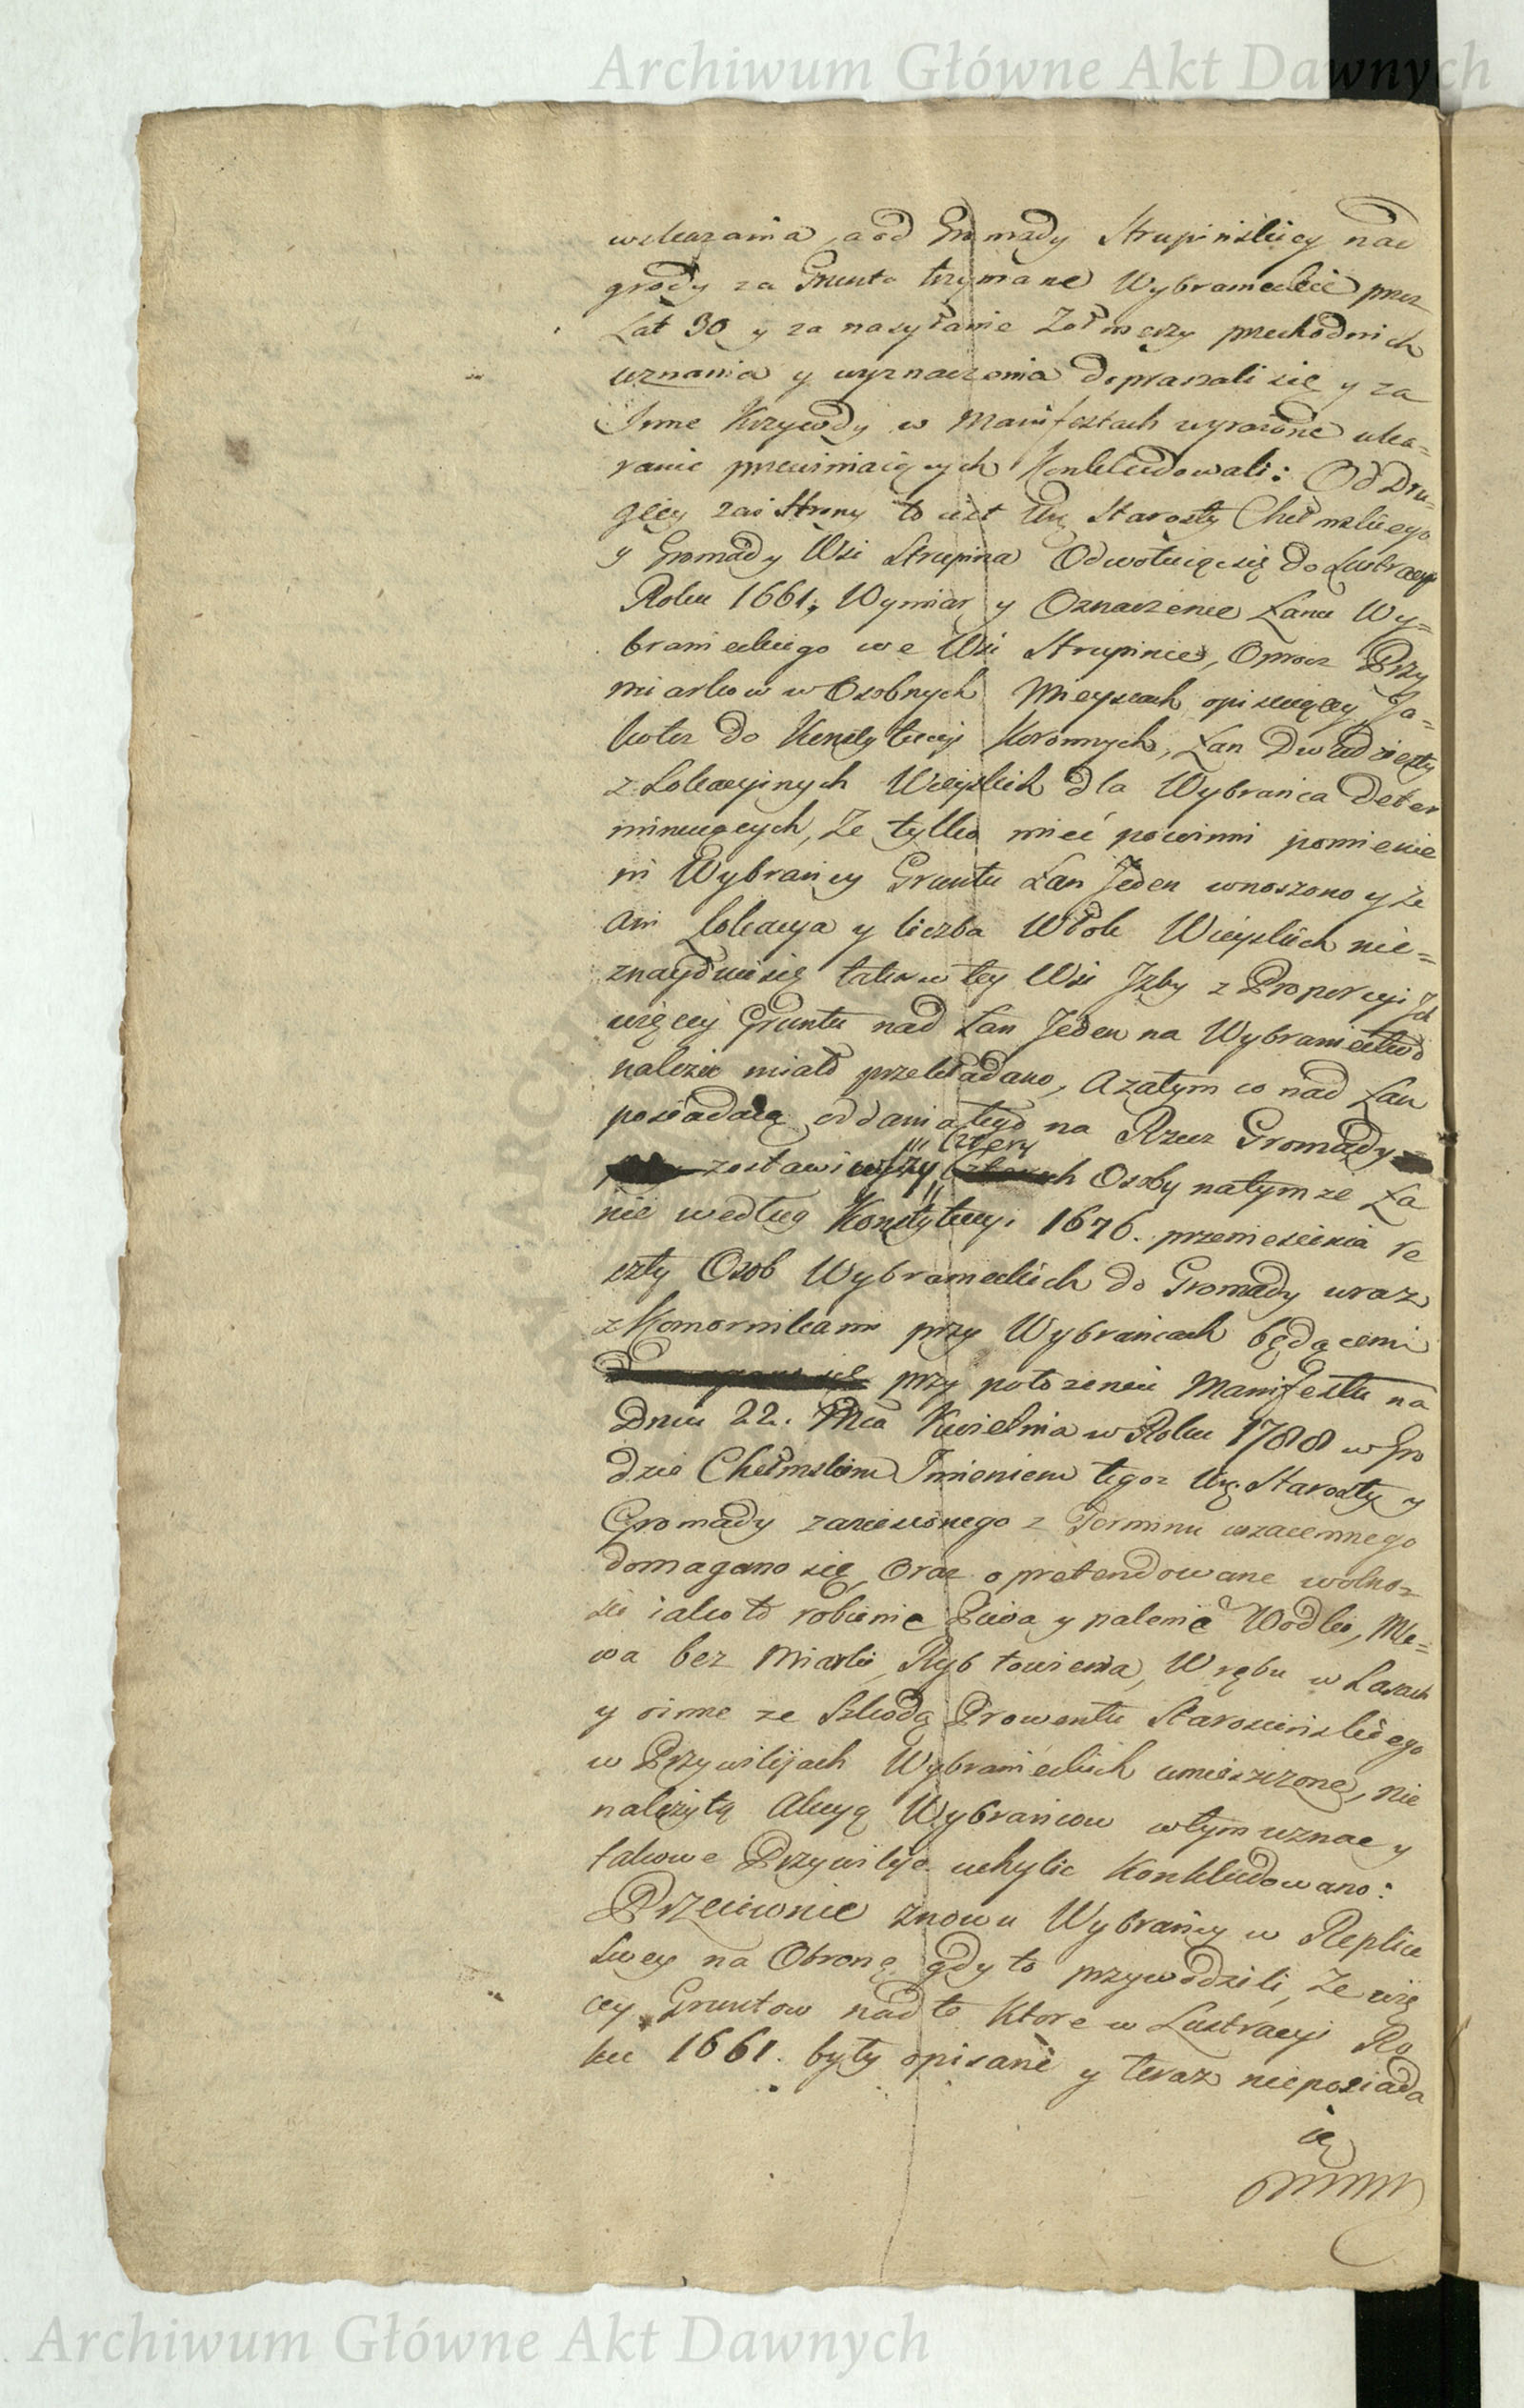 Archiwum Główne Akt Dawnych
wskazania, a od Gromady Strupińskiey nad
grody za Grunta trzymane Wybranieckie przez
Lat 30 y za nasyłanie Żołnierzy przechodnich
uznania y wyznaczenia dopraszali się y za
Inne Krzywdy w Manifestach wyrażone uka=
ranie przewiniaiących Konkludowali: Od Dru=
giey zaś Strony to iest Ur. Starosty Chełmskiego
y Gromady Wsi Strupina Odwołuiąc się do Lustracyi
Roku 1661, Wymiar y Oznaczenie Łanu Wy=
branieckiego we Wsi Strupinie, Oprocz Przy
miarkow w Osobnych Mieyscach opisuiącey, Ja=
kotez do Konstytucyi Koronnych, Łan Dwudziesty
z Lokacyinych Wieyskich dla Wybrańca deter
minuiących, Ze tylko mieć powinni pomienie
ni Wybrańcy Gruntu Łan Jeden wnoszono y że
Ani Lokacya y liczba Włok Wieyskich nie=
znayduie się taka w tey Wsi Jżby z Proporcyi Jch
więcey Gruntu nad Łan Jeden na Wybraniectwo
należeć miało przekładano, A zatym co nad Łan
posiadaią oddania tego na Rzecz Gromady
zostawiwszy cztery Osoby na tymże Ła
nie według Konstytucyi 1676. przeniesienia re
szty Osob Wybranieckich do Gromady wraz
z Komornikami przy Wybrańcach będącemi
przy położeniu Manifestu na
Dniu 22. Mca Kwietnia w Roku 1788 w Gro
dzie Chełmskim Imieniem tegoz Ur. Starosty y
Gromady zaniesionego z Terminu wzaiemnego
domagano się, Oraz o pretendowane wolno=
ści iako to robienie Piwa y palenie Wodki, Mle=
wa bez Miarki, Ryb łowienia, Wrębu w Lasach
y inne ze Szkodą Prowentu Starościńskiego
w Przywilijach Wybranieckich umieszczone, nie
należytą Akcyą Wybrańcow w tym uznać y
takowe Przywileje uchylic Konkludowano:
Przeciwnie znowu Wybrańcy w Replice
Swey na Obronę gdy to przywodzili, Ze wię
cey Gruntow nad to Ktore w Lustracyi Ro
ku 1661. były opisane y teraz nie posiada
ią
Archiwum Główne Akt Dawnych